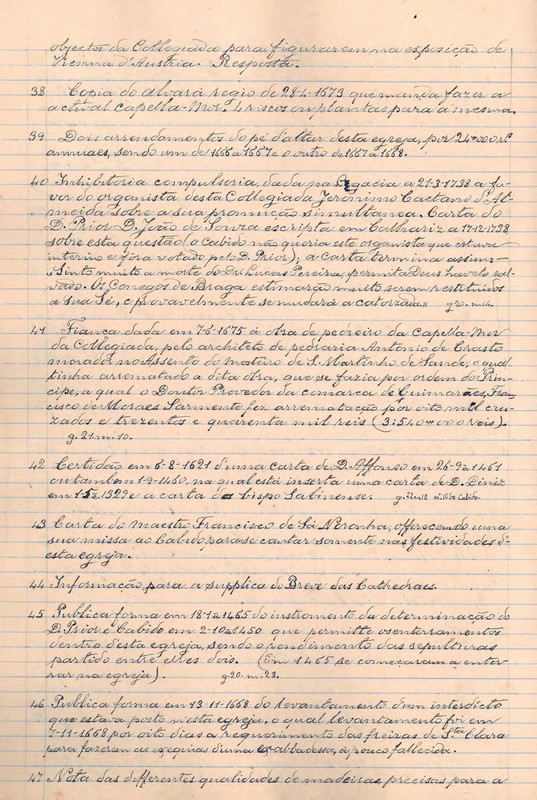 objectos da Collegiada para figurarem na exposição de
Vienna d'Austria. Resposta.
38 Copia do alvará regio de 28-4-1673 que manda fazer a
actual capella-Mór e riscos ou plantas para a mesma.
39 Dois arrendamentos do pé d'altar desta egreja, por 24000 rs.
annuaes, sendo um de 1666 a 1667 e o outro de 1667 a 1668.
40 Inhibitoria compulsoria, dada pa Legacia a 21-3-1738 a fa-
vor do organista desta Collegiada Jeronimo Caetano d'Al-
meida sobre a sua promução simultanea. Carta do
D. Prior D. João de Souza escripta em Calhariz a 17-12-1738
sobre esta questão (o Cabido não queria este organista que estava
interino e fôra votado pelo D. Prior); a carta termina assim:—
Sinto muito a morte do Dr. Lucas Pereira, permita Deus havelo sal-
vado. Os Conegos de Braga estimarão muito serem restituidos
a sua Sé, e provavelmente se mudará a
41 Fiança dada em 7-6-1675 á obra de pedreiro da Capella-Mor
da Collegiada, pelo architeto de pedraria Antonio de Crasto
morador no Assento do mosteiro de S. Martinho de Sande, o qual
tinha arrematado a dita obra, que se fazia por ordem do Prin-
cipe, a qual o Doutor Provedor da comarca de Guimarães, Fran-
cisco de Moraes Sarmento fez arrematação por oito mil cru-
zados e trezentos e quarenta mil reis (3:540000 reis).
g. 21. m. 10.
42 Certidão em 6-8-1621 d'uma carta de D. Affonso em 26-9-1461
outambem 1-9-1450, na qual está inserta uma carta de D. Diniz
em 1329 e a carta do bispo Sabinense.
43 Carta do maestro Francisco de Sá Noronha, offerecendo uma
sua missa ao Cabido, para se cantar somente nas festividades d'
esta egreja.
44 Informação, para a supplica do Breve das Cathedraes.
45 Publica forma em 18-1-1465 do instromento da determinação do
D. Prior e Cabido em 2-10-1450 que permitte os enterramentos
dentro desta egreja, sendo o rendimento das sepulturas
partido entre elles dois. (Em 1465 se começaram a enter-
rar na egreja). g. 20. m. 23.
46 Publica forma em 13-11-1668 do levantamento d'um interdicto
que estava posto n'esta egreja, o qual levantamento foi em
7-11-1668 por oito dias a requerimento das freiras de Sta Clara
para fazerem as exequias d'uma ex abbadessa, á pouco fallecida.
47 Nota das differentes qualidades de madeiras precisas para a